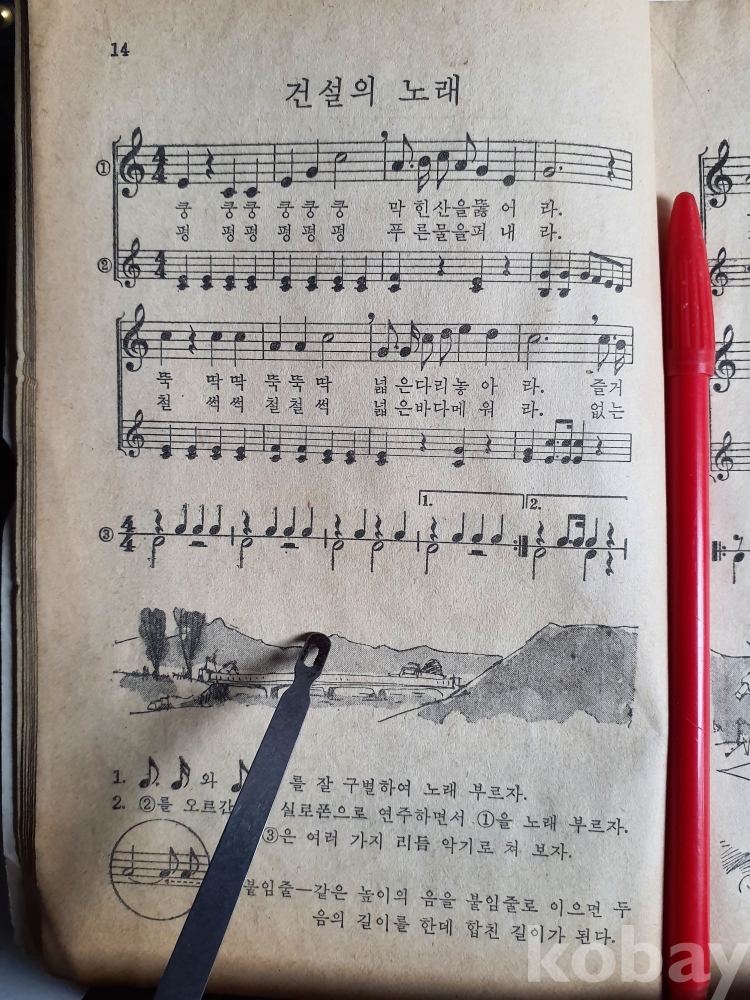 14
건설의 노래
①
쿵 쿵쿵 쿵 쿵 쿵 막 힌산을뚫 어 라.
펑 펑펑 펑 펑 펑 푸 른물을퍼 내 라.
②
뚝 딱딱 뚝뚝 딱 넓 은다리놓 아 라. 즐거
철 썩썩 철철 썩 넓 은바다메 워 라. 없는
1. 2.
③
1. 와 를 잘 구별하여 노래 부르자.
2. ②를 오르간 실로폰으로 연주하면서 ①을 노래 부르자.
③은 여러 가지 리듬 악기로 쳐 보자.
붙임줄—같은 높이의 음을 붙임줄로 이으면 두
음의 길이를 한데 합친 길이가 된다.
kobay